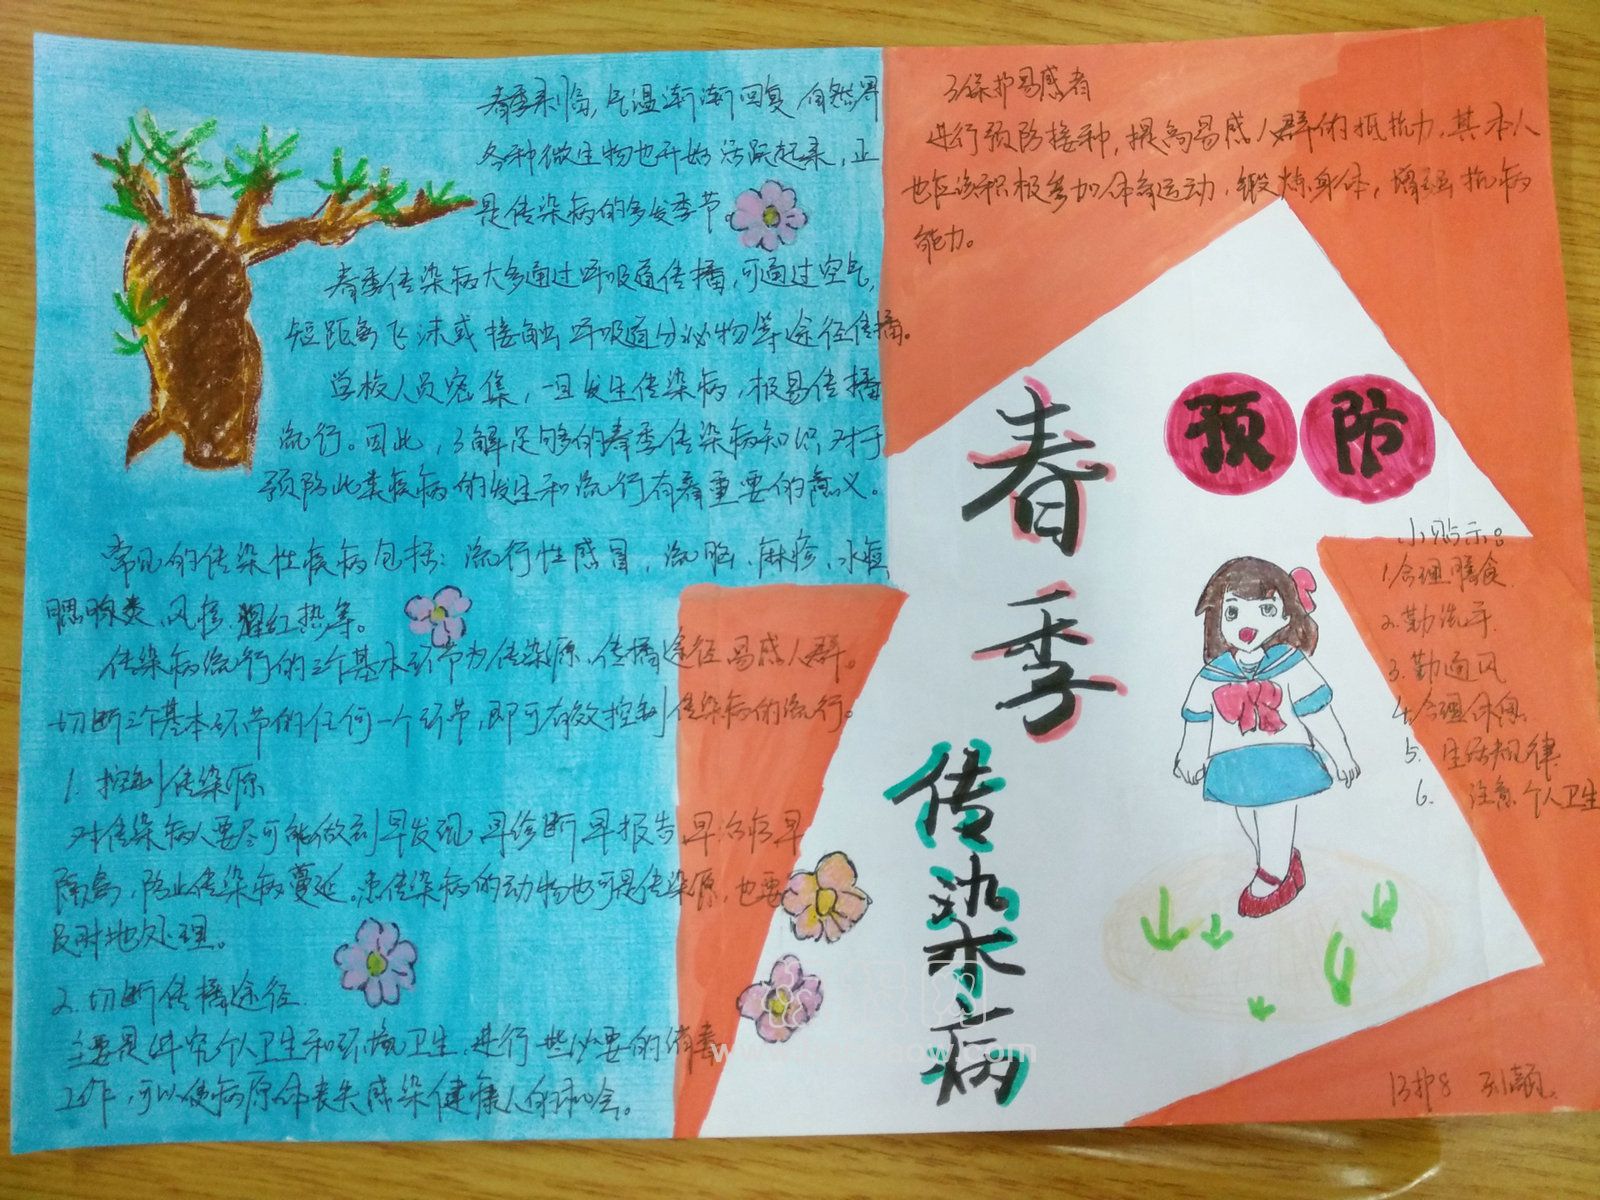 春季来临,气温渐渐回复,自然界
各种微生物也开始活跃起来,正
是传染病的多发季节。
春季传染病大多通过呼吸道传播,可通过空气,
短距离飞沫或接触呼吸道分泌物等途径传播。
学校人员密集,一旦发生传染病,极易传播
流行。因此,了解足够的春季传染病知识,对于
预防此类疾病的发生和流行有着重要的意义。
常见的传染性疾病包括:流行性感冒,流脑、麻疹、水痘
腮腺炎、风疹、猩红热等。
传染病流行的三个基本环节为传染源、传播途径、易感人群。
切断三个基本环节的任何一个环节,即可有效控制传染病的流行。
1.控制传染源
对传染病人要尽可能做到早发现、早诊断、早报告、早治疗、早
隔离,防止传染病蔓延。患传染病的动物也可是传染源,也要
及时地处理。
2.切断传播途径.
主要是讲究个人卫生和环境卫生,进行一些必要的消毒
工作,可以使病原体丧失感染健康人的机会。
3保护易感者
进行预防接种,提高易感人群的抵抗力,其本人
也应该积极参加体育运动,锻炼身体,增强抗病
能力。
预防
春季
传染病
小贴示:
1.合理膳食.
2.勤洗手.
3.勤通风
4.合理休息.
5.生活规律.
6.注意个人卫生
13护8